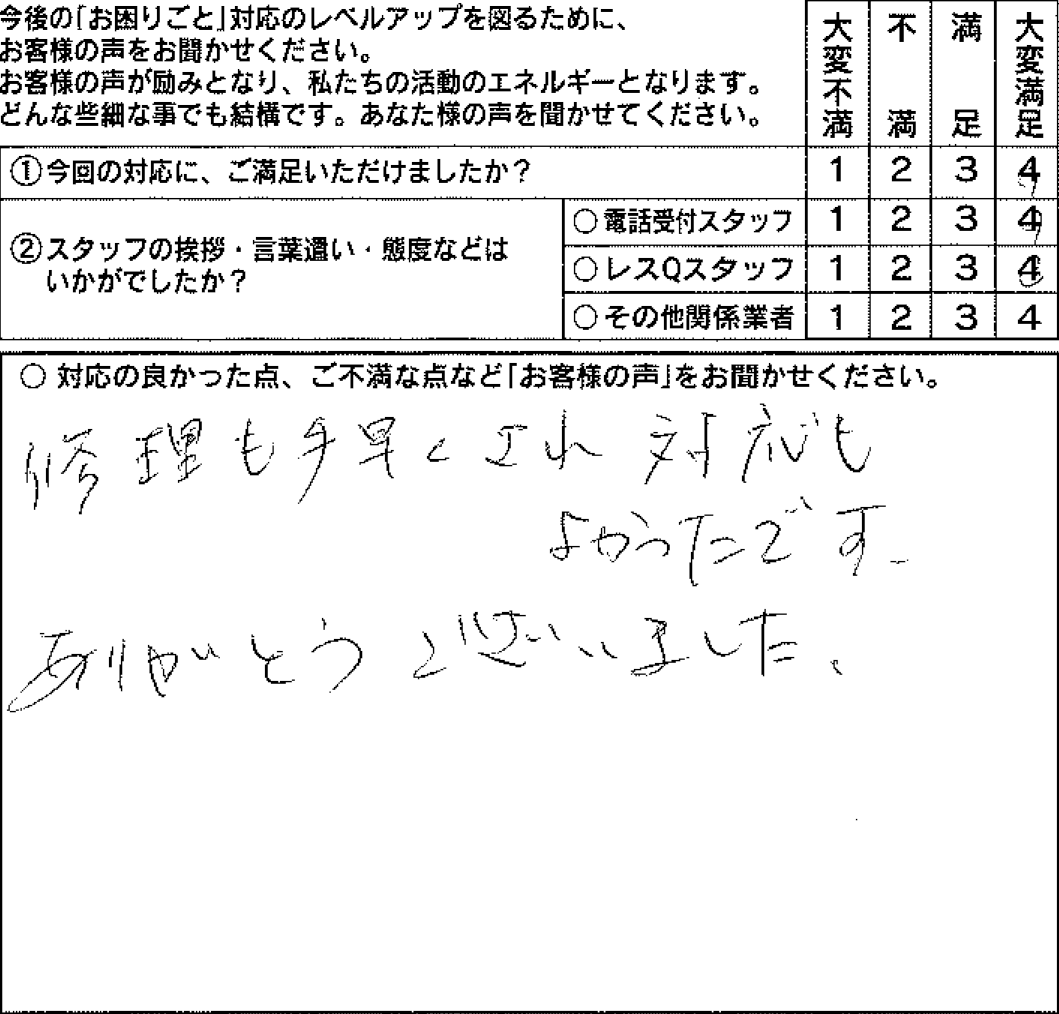 今後の「お困りごと」対応のレベルアップを図るために、
お客様の声をお聞かせください。
お客様の声が励みとなり、私たちの活動のエネルギーとなります。
どんな些細な事でも結構です。あなた様の声を聞かせてください。
大変不満 不満 満足 大変満足
①今回の対応に、ご満足いただけましたか？ 1 2 3 4
②スタッフの挨拶・言葉遣い・態度などは
いかがでしたか？
○電話受付スタッフ 1 2 3 4
○レスQスタッフ 1 2 3 4
○その他関係業者 1 2 3 4
○ 対応の良かった点、ご不満な点など「お客様の声」をお聞かせください。
修理も手早くされ対応も
よかったです。
ありがとうございました。